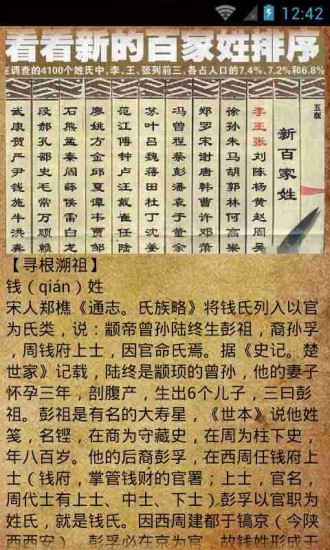 看看新的百家姓排序
在调查的4100个姓氏中,李、王、张列前三,各占人口的7.4%、7.2%和6.8%
五版
新百家姓
李王张刘陈杨黄赵周吴
徐孙朱马胡郭林何高梁
郑罗宋谢唐韩曹许邓萧
冯曾程蔡彭潘袁于董余
苏叶吕魏蒋田杜丁沈姜
范江傅钟卢汪戴崔任陆
廖姚方金邱夏谭韦贾邹
石熊孟秦阎薛侯雷白龙
段郝孔邵史毛常万顾赖
武康贺严尹钱施牛洪龚
12:42
【寻根溯祖】
钱（qián）姓
宋人郑樵《通志。氏族略》将钱氏列入以官
为氏类，说：颛帝曾孙陆终生彭祖，裔孙孚
，周钱府上士，因官命氏焉。据《史记。楚
世家》记载，陆终是颛顼的曾孙，他的妻子
怀孕三年，剖腹产，生出6个儿子，三曰彭
祖。彭祖是有名的大寿星，《世本》说他姓
篯，名铿，在商为守藏史，在周为柱下史，
年八百岁。他的后裔彭孚，在西周任钱府上
士（钱府，掌管钱财的官署；上士，官名，
周代士有上士、中士、下士).彭孚以官职为
姓氏，就是钱氏。因西周建都于镐京（今陕
西西安），彭孚必在京为官，故钱姓形成于